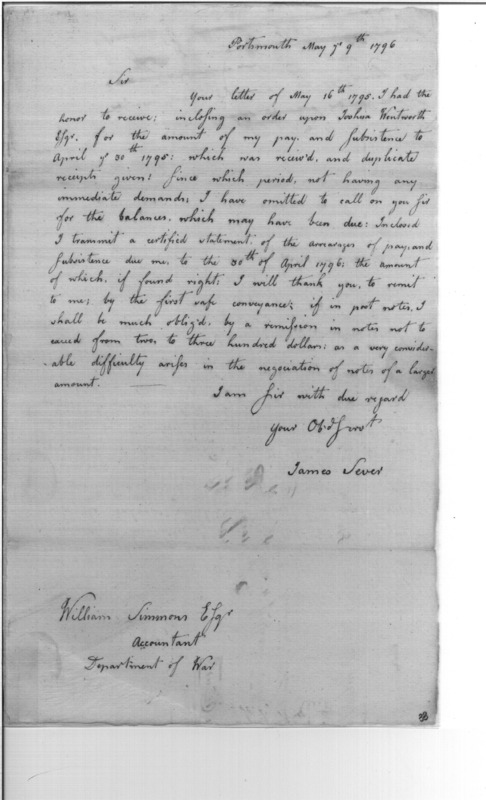 Portsmouth May ye 9th 1796
Sir
Your letter of May 16th 1795. I had the
honor to receive; inclosing an order upon Joshua Wentworth
Esqr. for the amount of my pay, and Subsistence to
April ye 30th 1795: which was receiv'd, and duplicate
receipts given: Since which period, not having any
immediate demands, I have omitted to call on you Sir
for the balances, which may have been due: Inclosed
I transmit a certified statement of the arrearages of pay, and
Subsistence due me, to the 30th of April 1796; the amount
of which, if found right; I will thank you, to remit
to me; by the first safe conveyance; if in post notes, I
shall be much oblig'd, by a remission in notes not to
exceed from two, to three hundred dollars: as a very consider-
-able difficulty arises in the negociation of notes of a larger
amount.
I am Sir with due regard
Your Obd Servt
James Sever
William Simmons Esqr
Accountant
Department of War